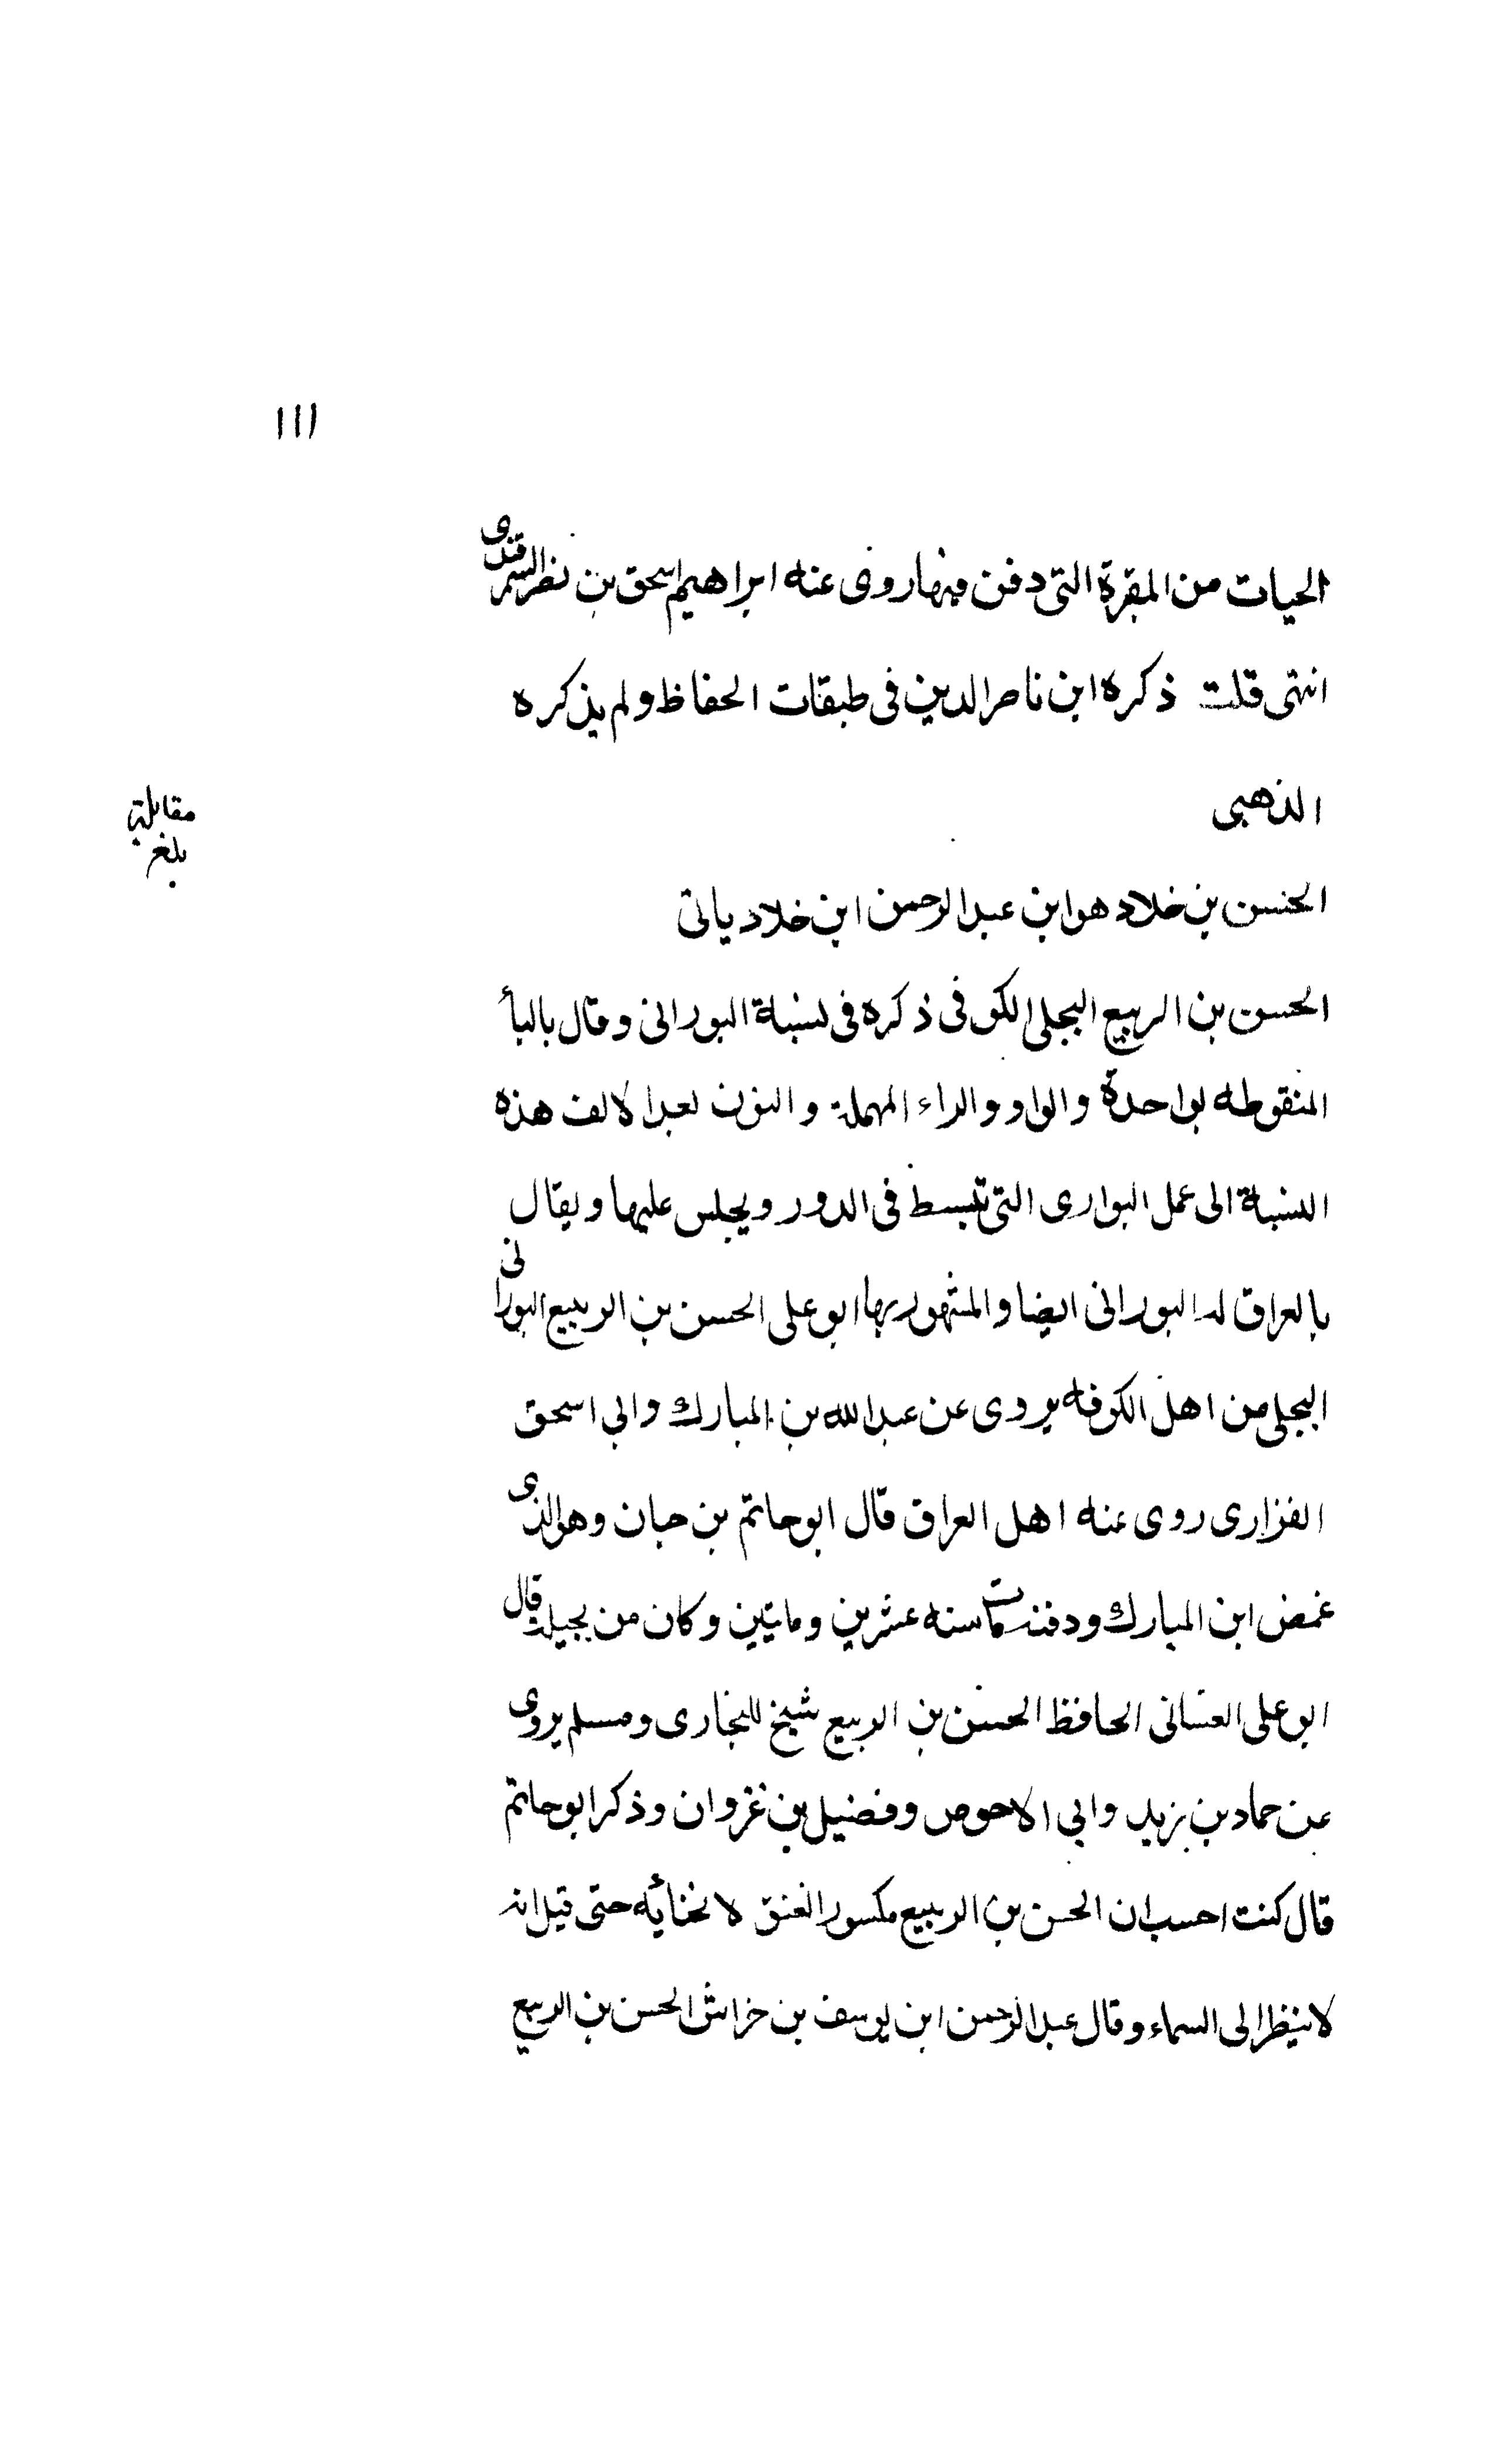 ١١١
الحيات من المقبرة التى دفن فيها روى عنه ابراهيم اسحق بن نصر السمرقندى
انتهى قلت ذكره ابن ناصر الدين فى طبقات الحفاظ ولم يذكره
الذهبى
مقابلة
بلغ
الحسن بن خلاد هو ابن عبد الرحمن ابن خلاد ياتى
الحسن بن الربيع البجلى الكوفى ذكره فى نسبة البورانى وقال بالبأ
المنقوطه بواحدة والواو والراء المهملة والنون بعد الالف هذه
النسبة الى عمل البوارى التى تبسط فى الدور ويجلس عليها ويقال
بالعراق له البورانى ايضا والمشهور بها ابو على الحسن بن الربيع البورانى
البجلى من اهل الكوفه يروى عن عبد الله بن المبارك وابى اسحق
الفزارى روى عنه اهل العراق قال ابو حاتم بن حبان وهو الذى
غمض ابن المبارك ودفنه مات سنه عشرين وماتين وكان من بجيلة قال
ابو على الغسانى الحافظ الحسن بن الربيع شيخ للبخارى ومسلم يروى
عن حماد بن زيد وابى الاحوص وفضيل بن غزوان وذكر ابو حاتم
قال كنت احسب ان الحسن بن الربيع مكسور العنق لانحنأيه حتى قيل انه
لا ينظر الى السماء وقال عبد الرحمن ابن يوسف بن خراش الحسن بن الربيع